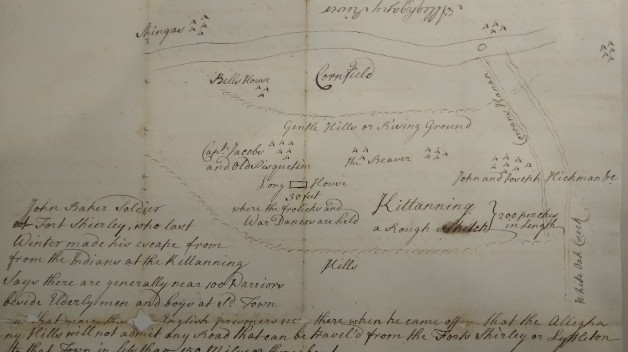 Alleghgany River
Shingas
Bell's House
Cornfield
Gentle Hills or Rising Ground
Capt. Jacobs
and Old Pisquetim
The Beaver
John and Joseph Hickman &c
Long House
30 feet
where the frolicks and
War Dances are held
Kittanning
a Rough Sketch
200 perches
in length
White Oak Creek
Hills
John Baker Soldier
at Fort Shierley, who last
Winter made his escape from
from the Indians at the Kittanning
Says there are generally near 100 Warriors
beside Elderlymen and boys at Sd. Town
that more than English prisoners there when he came off that the Allegha
ny Hills will not admit any Road that can be travel'd from the Forts Shirley or Lyttleton
to that Town in less than 150 Miles